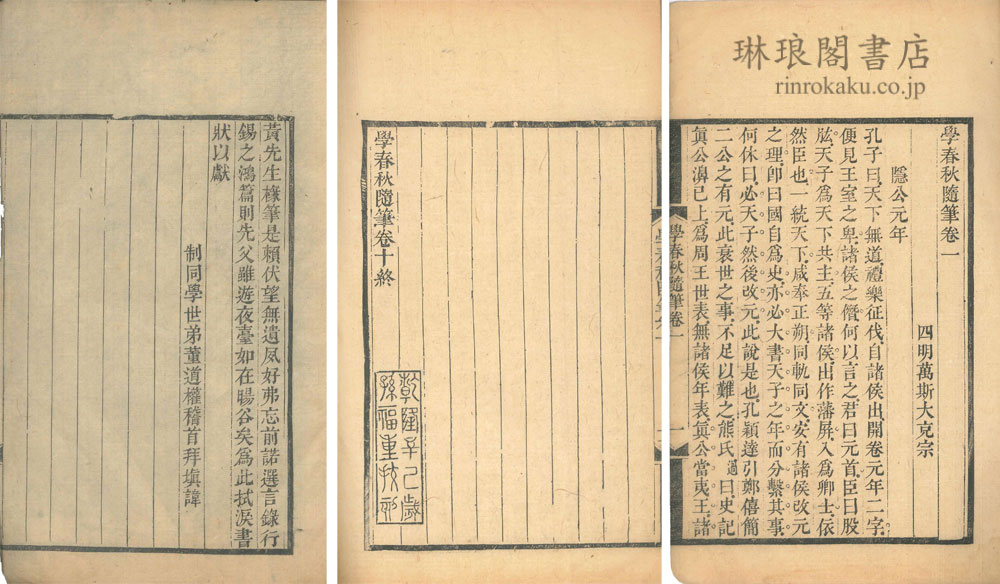 琳琅閣書店
rinrokaku.co.jp
學春秋隨筆卷一
四明萬斯大充宗
隱公元年
孔子曰天下無道禮樂征伐自諸侯出開卷元年二字
便見王室之卑諸侯之僭何以言之君曰元首臣曰股
肱天子為天下共主五等諸侯出作藩屏入為卿士依
然臣也一統天下咸奉正朔同軌同文安有諸侯改元
之理卽曰國自爲史亦必大書天子之年而分繫其事
何休曰必天子然後改元此說是也孔穎達引鄭僖簡
二公之有元此衰世之事不足以難之熊氏過曰史記
眞公濞已上爲周王世表無諸侯年表眞公當夷王諸
學春秋隨筆卷一
學春秋隨筆卷十終
乾隆辛巳歲
孫福重校刊
黃先生椽筆是賴伏望無遺夙好弗忘前諾選言錄行
錫之鴻篇則先父雖遊夜臺如在暘谷矣爲此拭淚書
狀以獻
制同學世弟董道權稽首拜塡諱